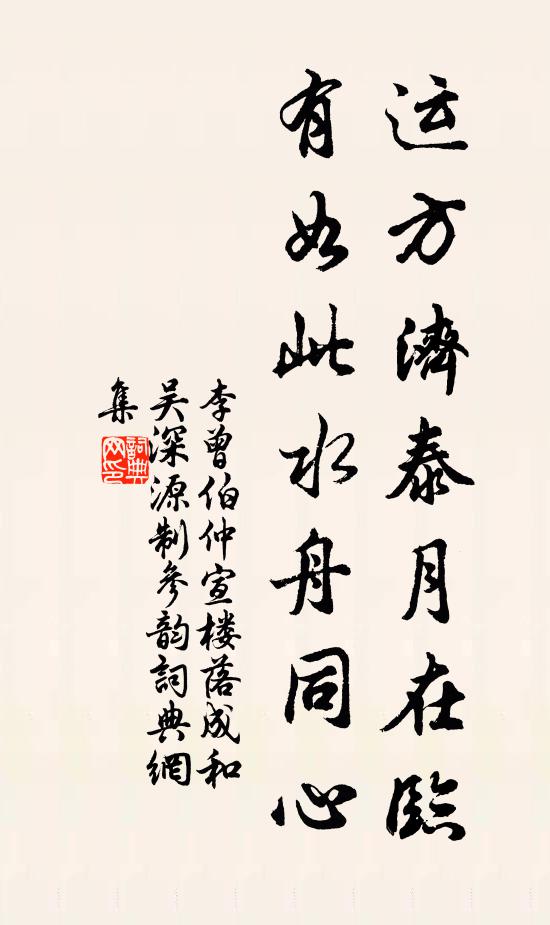 运方濟泰月在臨
有如此水舟同心
李曾伯仲宣楼落成和
吴深源制参韵詞典網
集
詞典网印